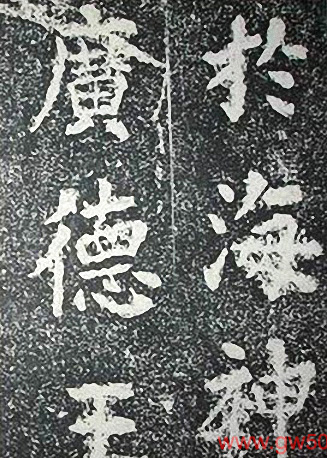 於海神
廣德王
www.gw50